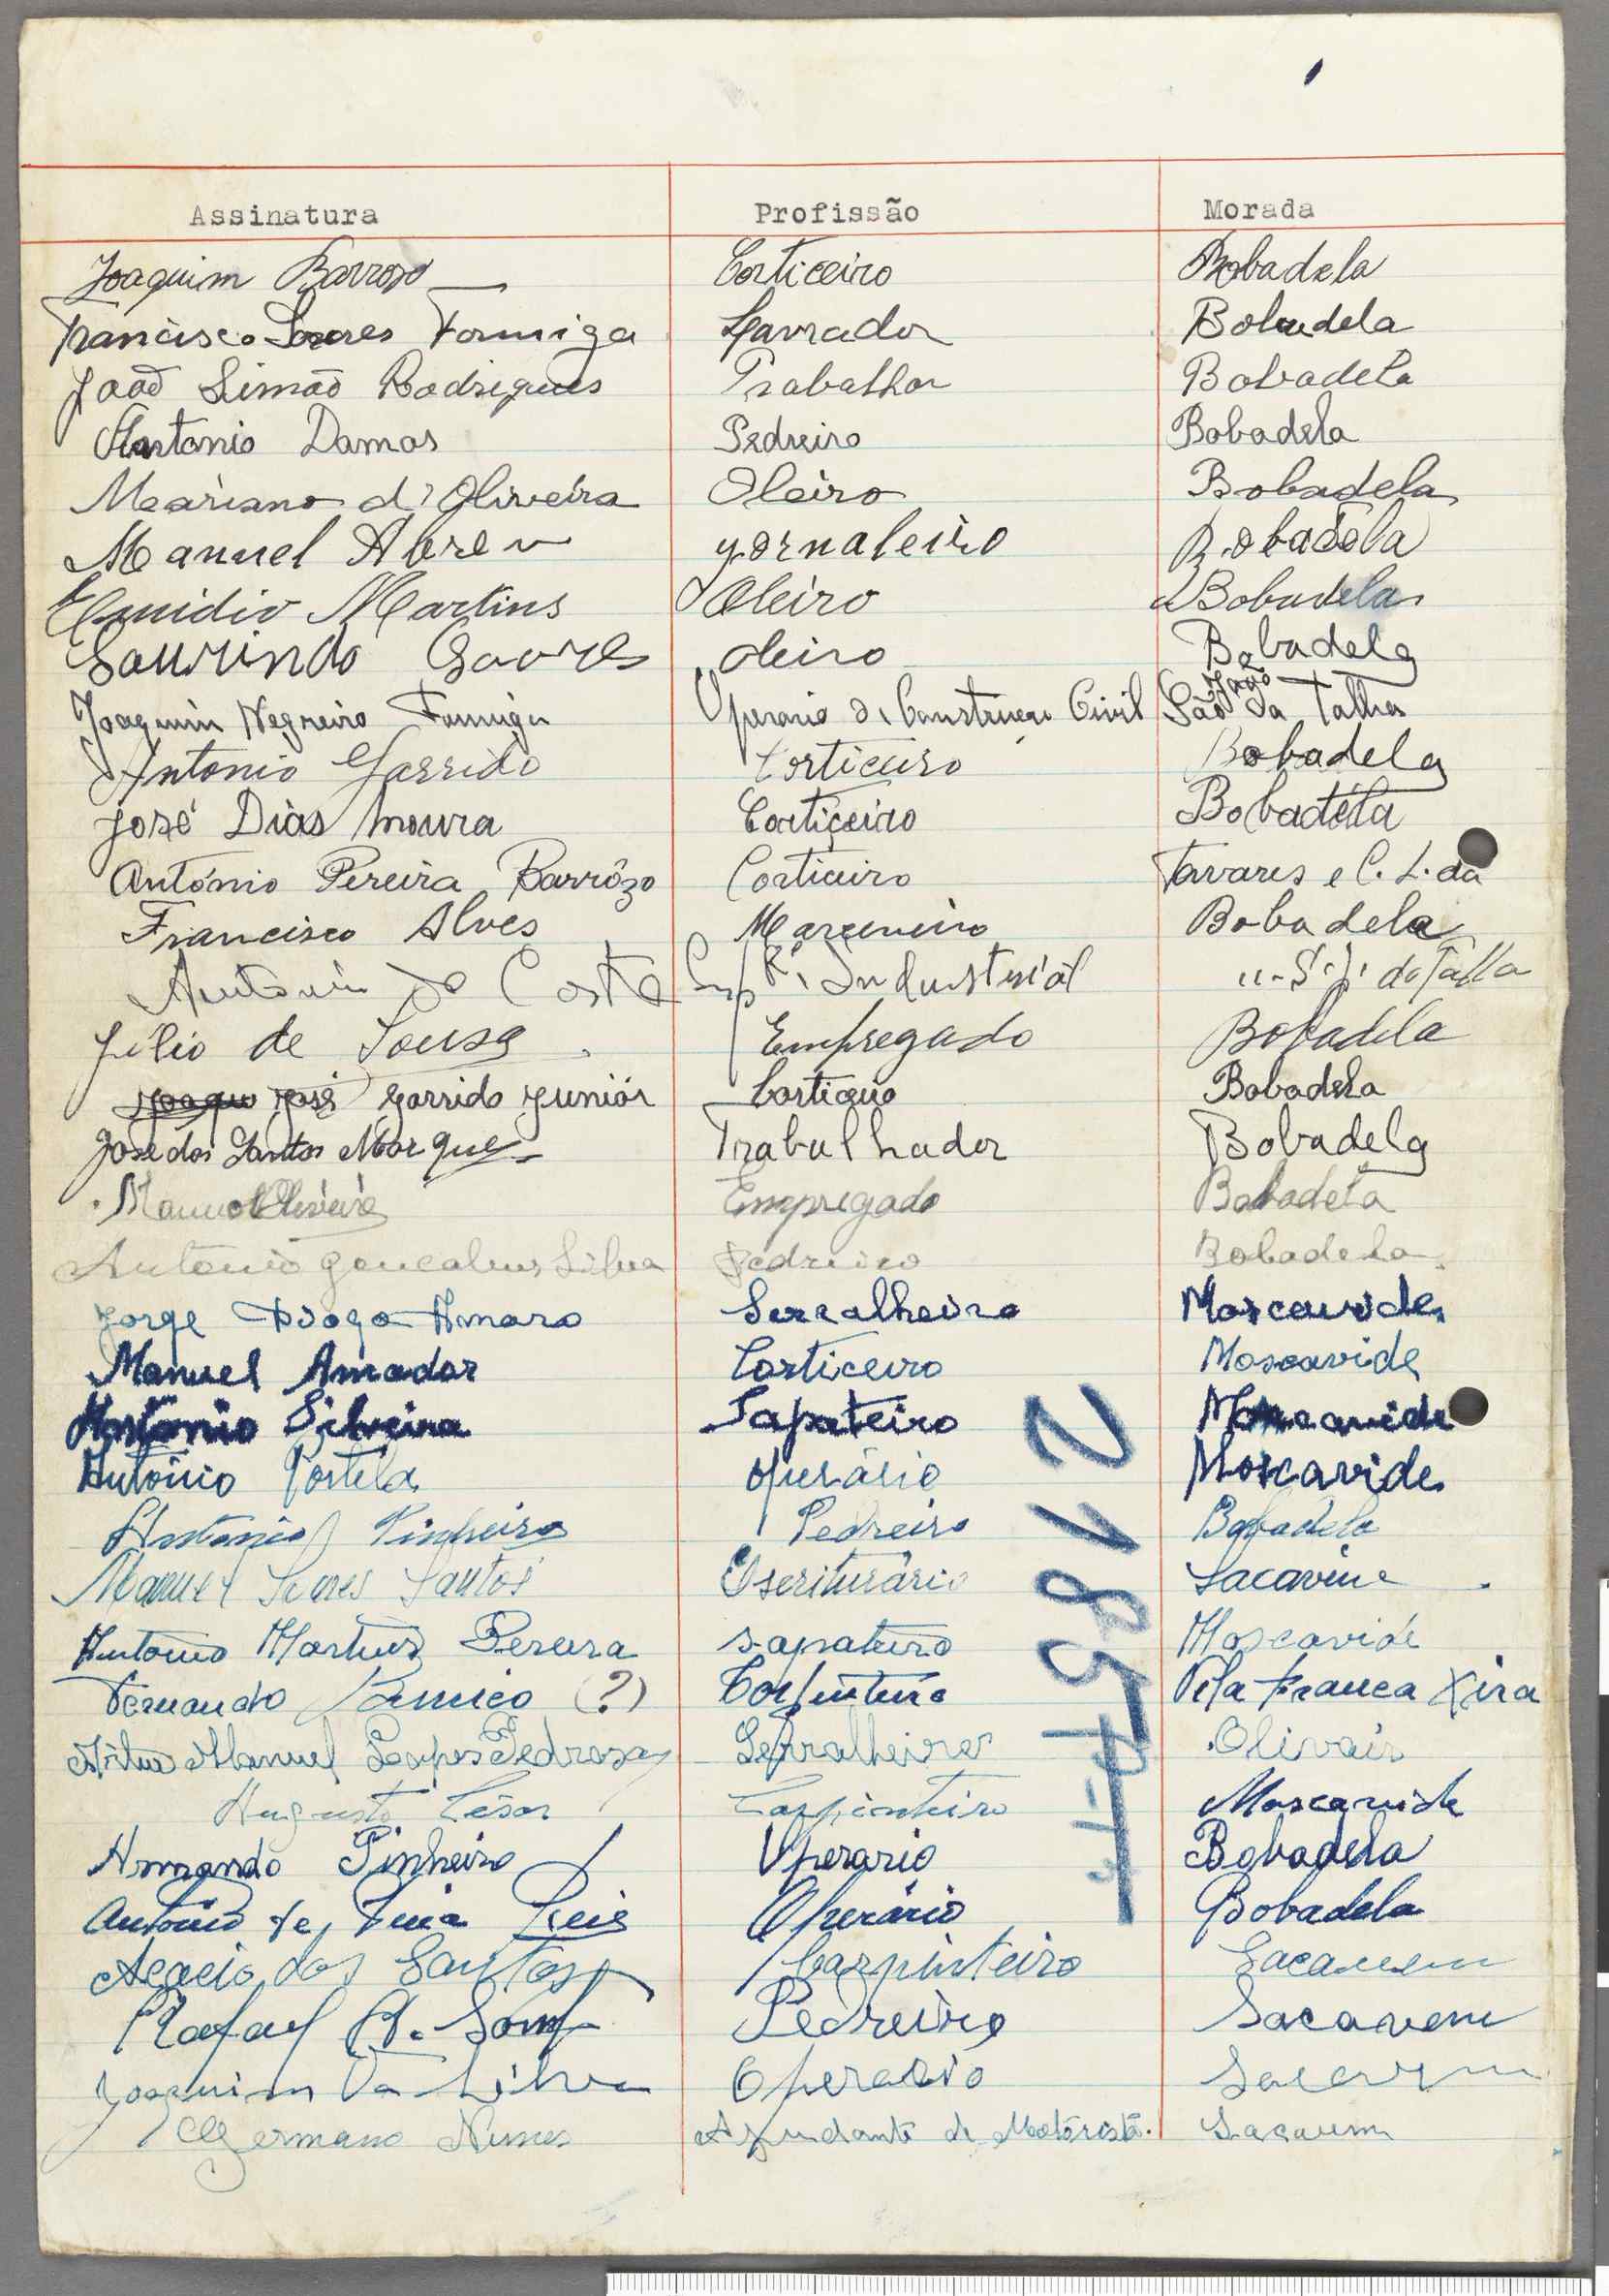 Assinatura Profissão Morada
Joaquim Barrozo Corticeiro Bobadela
Francisco Soares Formiga Lavrador Bobadela
João Simão Rodrigues Trabalhor Bobadela
Antonio Damas Pedreiro Bobadela
Mariano d'Oliveira Oleiro Bobadela
Manuel Abreu Jornaleiro Bobadela
Emidio Martins Oleiro Bobadela
Laurindo Soares oleiro Bobadela
Joaquim Negreiro Formiga Operario da Construçao Civil São João da Talha
Antonio Garrido Corticeiro Bobadela
José Dias Moura Corticeiro Bobadela
António Pereira Barrôzo Corticeiro Tavares e C. L.da
Francisco Alves Marceneiro Bobadela
Antonio da Costa Emp. Industrial S. J. da Talha
Júlio de Sousa Empregado Bobadela
José Garrido Juniór Corticeiro Bobadela
José dos Santos Marques Trabalhador Bobadela
Manuel Oliveira Empregado Bobadela
Antonio Goncalves Silva Pedreiro Bobadela
Jorge Diogo Amaro Serralheiro Moscavide
Manuel Amador Corticeiro Moscavide
Antonio Silveira Sapateiro Moscavide
António Portela operário Moscavide
Antonio Pinheiro Pedreiro Bobadela
Manuel Soares Santos Escriturário Sacavém
Antonio Martins Pereira sapateiro Moscavide
Fernando (?) Carpinteiro Vila Franca Xira
Artur Manuel Lopes Pedrosa Serralheiro Olivais
Augusto César Carpinteiro Moscavide
Armando Pinheiro Operario Bobadela
António de Operário Bobadela
Acacio dos Santos Carpinteiro Sacavem
Rafael A. Pedreiro Sacavem
Joaquim da Silva Operario Sacavem
Germano Nunes Ajudante de Motorista. Sacavem
21857